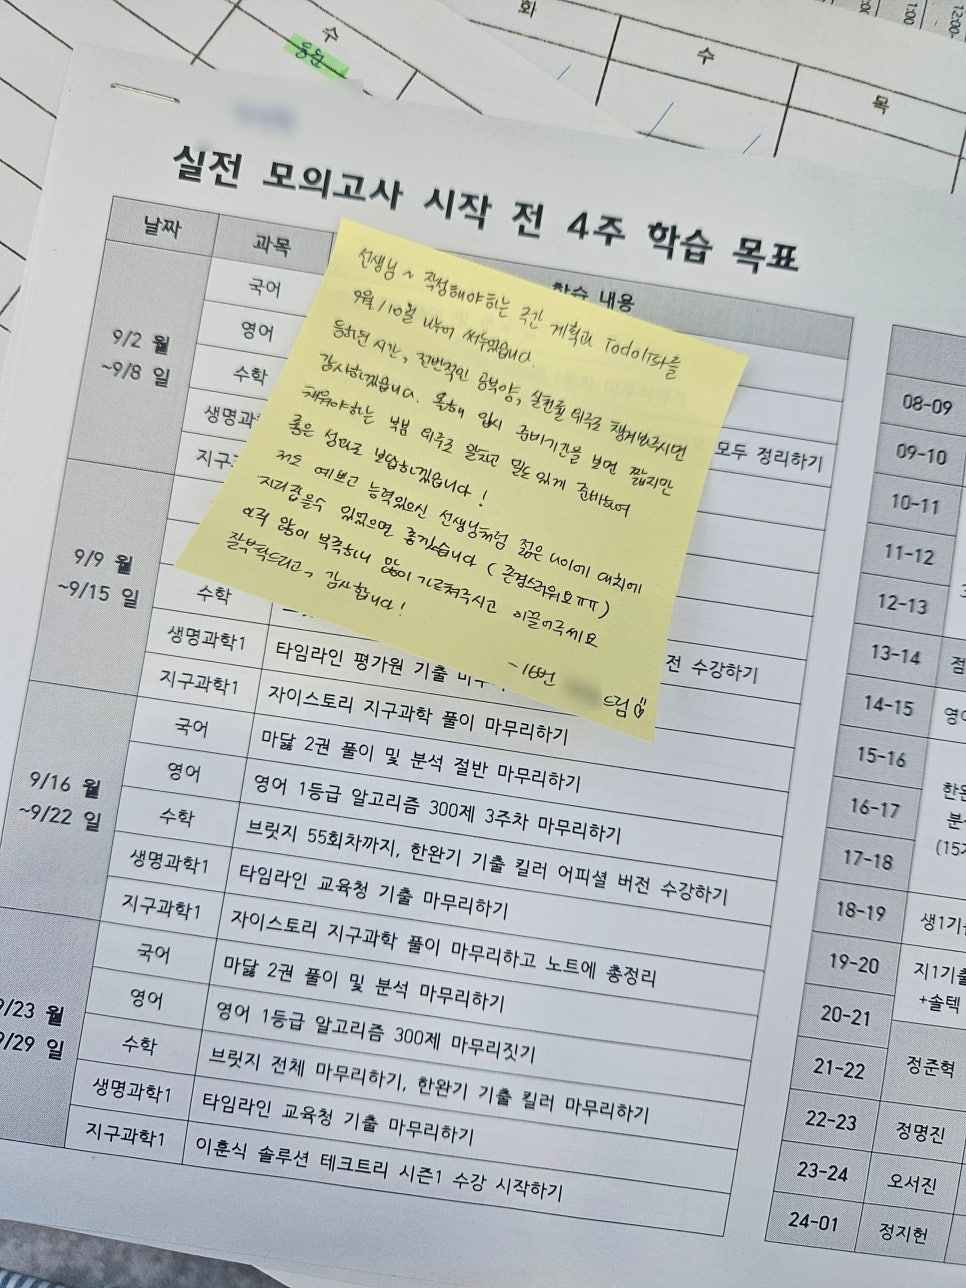 화
수
수
목
1:00
12:00
실전 모의고사 시작 전 4주 학습 목표
날짜 과목 학습 내용
9/2 월
~9/8 일
국어
영어
수학
생명과학
모두 정리하기
지구
선생님~ 작성해야하는 주간 계획과 Todo리스트를
9월/10월 나누어 써두었습니다
등하원시간, 전반적인 공부양, 실천률 위주로 챙겨봐주시면
감사하겠습니다. 올해 입시 준비기간을 보면 짧지만
채워야하는 부분 위주로 알차고 밀도 있게 준비하여
좋은 성과로 보답하겠습니다!
저도 예쁘고 능력있으신 선생님처럼 젊은 나이에 대치에
자리잡을수 있었으면 좋겠습니다 (존경스러워요ㅠㅠ)
아직 많이 부족하니 많이 가르쳐주시고 이끌어주세요
잘부탁드리고, 감사합니다!
-16번
드림
9/9 월
~9/15 일
수학
전 수강하기
생명과학1 타임라인 평가원 기출 마무
지구과학1 자이스토리 지구과학 풀이 마무리하기
9/16 월
~9/22 일
국어 마닳 2권 풀이 및 분석 절반 마무리하기
영어 영어 1등급 알고리즘 300제 3주차 마무리하기
수학 브릿지 55회차까지, 한완기 기출 킬러 어피셜 버전 수강하기
생명과학1 타임라인 교육청 기출 마무리하기
지구과학1 자이스토리 지구과학 풀이 마무리하고 노트에 총정리
/23 월
/29 일
국어 마닳 2권 풀이 및 분석 마무리하기
영어 영어 1등급 알고리즘 300제 마무리짓기
수학 브릿지 전체 마무리하기, 한완기 기출 킬러 마무리하기
생명과학1 타임라인 교육청 기출 마무리하기
지구과학1 이훈식 솔루션 테크트리 시즌1 수강 시작하기
08-09
09-10
10-11
11-12
12-13
13-14 점
14-15 영어
15-16
16-17
17-18
한완
분
(15
18-19 생1기
19-20
20-21
지1기출
+솔텍
21-22 정준혁
22-23 정명진
23-24 오서진
24-01 정지헌